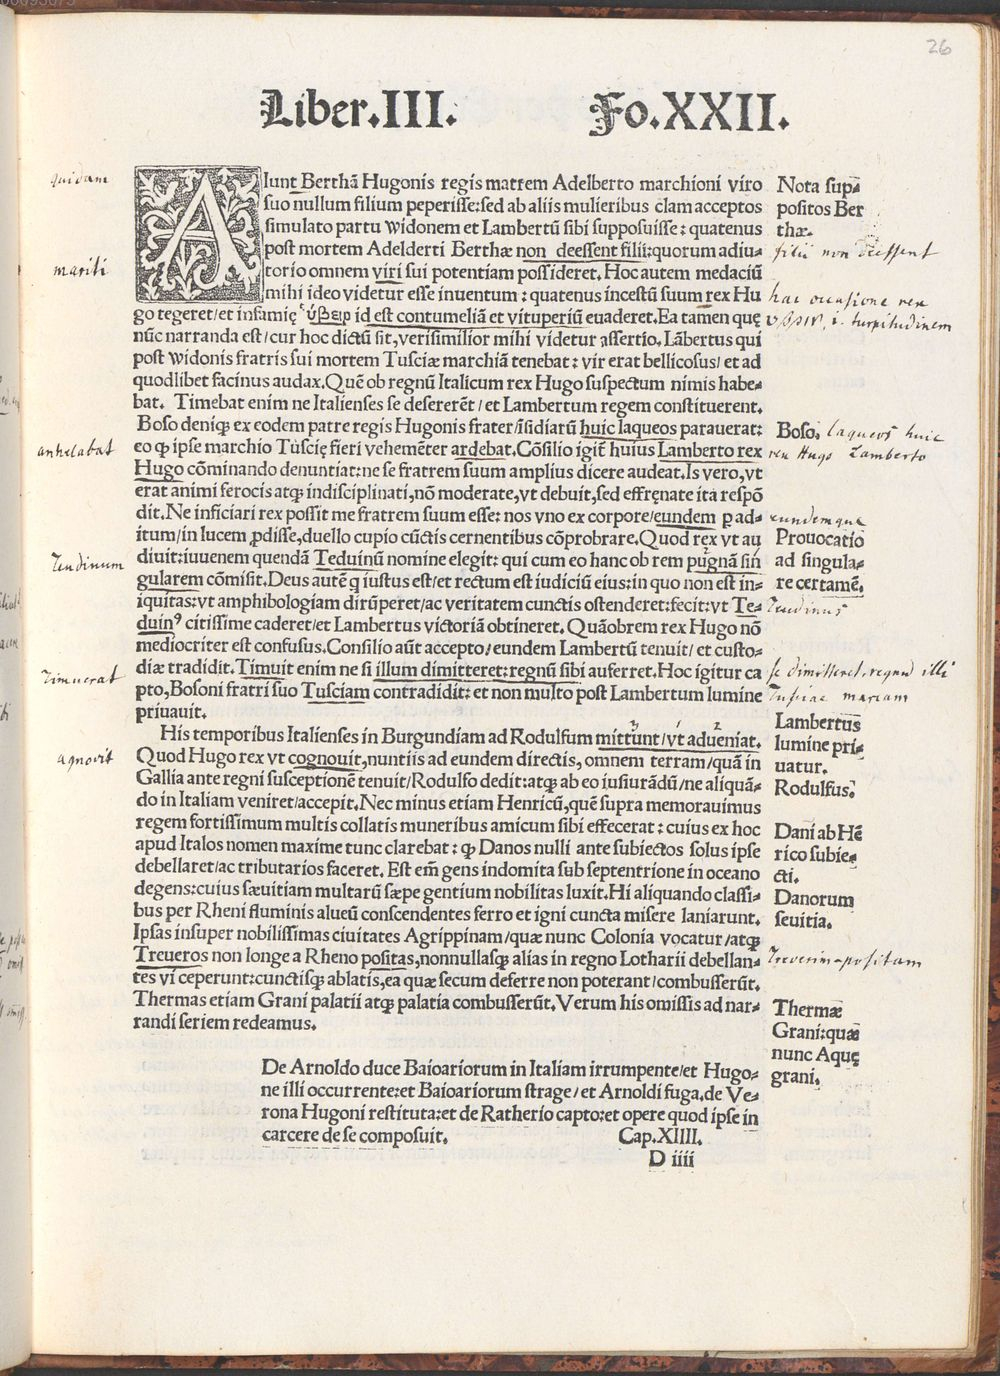 26
Liber.III. Fo.XXII.
AIunt Berthā Hugonis regis matrem Adelberto marchioni viro
suo nullum filium peperisse: sed ab aliis mulieribus clam acceptos
simulato partu Widonem et Lambertū sibi supposuisse: quatenus
post mortem Adelderti Berthæ non deessent filii: quorum adiu⸗
torio omnem viri sui potentiam possideret. Hoc autem medaciū
mihi ideo videtur esse inuentum: quatenus incestū suum rex Hu
go tegeret/ et infamię ὕβριρ id est contumeliā et vituperiū euaderet. Ea tamen quę
nūc narranda est/ cur hoc dictū sit, verisimilior mihi videtur assertio. Lābertus qui
post Widonis fratris sui mortem Tusciæ marchiā tenebat: vir erat bellicosus/ et ad
quodlibet facinus audax. Quē ob regnū Italicum rex Hugo suspectum nimis habe⸗
bat. Timebat enim ne Italienses se desererēt/ et Lambertum regem constituerent.
Boso deniqȝ ex eodem patre regis Hugonis frater/ īsidiarū huic laqueos parauerat:
eo ꝙ ipse marchio Tuscię fieri vehemēter ardebat. Cōsilio igit̄ huius Lamberto rex
Hugo cōminando denuntiat: ne se fratrem suum amplius dicere audeat. Is vero, vt
erat animi ferocis atqȝ indisciplinati, nō moderate, vt debuit, sed effrenate ita respō
dit. Ne inficiari rex possit me fratrem suum esse: nos vno ex corpore/ eundem ꝑ ad⸗
itum/ in lucem ꝓdisse, duello cupio cūctis cernentibus cōprobrare. Quod rex vt au
diuit: iuuenem quendā Teduinū nomine elegit: qui cum eo hanc ob rem pugnā sin
gularem cōmisit. Deus autē q̄ iustus est/ et rectum est iudiciū eius: in quo non est in⸗
iquitas: vt amphibologiam dirūperet/ ac veritatem cunctis ostenderet: fecit: vt Te⸗
duinꝰ citissime caderet/ et Lambertus victoriā obtineret. Quāobrem rex Hugo nō
mediocriter est confusus. Consilio aūt accepto/ eundem Lambertū tenuit/ et custo⸗
diæ tradidit. Timuit enim ne si illum dimitteret: regnū sibi auferret. Hoc igitur ca
pto, Bosoni fratri suo Tusciam contradidit: et non multo post Lambertum lumine
priuauit.
His temporibus Italienses in Burgundiam ad Rodulfum mittunt/ vt adueniat.
Quod Hugo rex vt cognouit, nuntiis ad eundem directis, omnem terram/ quā in
Gallia ante regni susceptionē tenuit/ Rodulfo dedit: atqȝ ab eo iusiurādū/ ne aliquā⸗
do in Italiam veniret/ accepit. Nec minus etiam Henricū, quē supra memorauimus
regem fortissimum multis collatis muneribus amicum sibi effecerat: cuius ex hoc
apud Italos nomen maxime tunc clarebat: ꝙ Danos nulli ante subiectos solus ipse
debellaret/ ac tributarios faceret. Est em̄ gens indomita sub septentrione in oceano
degens: cuius sæuitiam multarū sæpe gentium nobilitas luxit. Hi aliquando classi⸗
bus per Rheni fluminis alueū conscendentes ferro et igni cuncta misere laniarunt.
Ipsas insuper nobilissimas ciuitates Agrippinam/ quæ nunc Colonia vocatur/ atqȝ
Treueros non longe a Rheno positas, nonnullasqȝ alias in regno Lotharii debellan⸗
tes vi ceperunt: cunctisqȝ ablatis, ea quæ secum deferre non poterant/ combusserūt.
Thermas etiam Grani palatii atqȝ palatia combusserūt. Verum his omissis ad nar⸗
randi seriem redeamus.
De Arnoldo duce Baioariorum in Italiam irrumpente/ et Hugo⸗
ne illi occurrente: et Baioariorum strage/ et Arnoldi fuga, de Ve⸗
rona Hugoni restituta: et de Ratherio capto: et opere quod ipse in
carcere de se composuit. Cap.XIIII.
D iiii
Nota sup⸗
positos Ber
thæ.
filii non deessent
hac occasione rex
ὕβριν, i. turpitudinem
Boso. laqueos huic
rex Hugo Lamberto
eundemque
Prouocatio
ad singula⸗
re certamē.
Teudinus
se dimitteret, regnū illi
Tusciae marcam
Lambertus
lumine pri⸗
uatur.
Rodulfus.
Dani ab Hē
rico subie⸗
cti.
Danorum
seuitia.
Treverim positam
Thermæ
Grani: quæ
nunc Aquę
grani.
quidam
mariti
anhelabat
Teudinum
Timuerat
agnovit